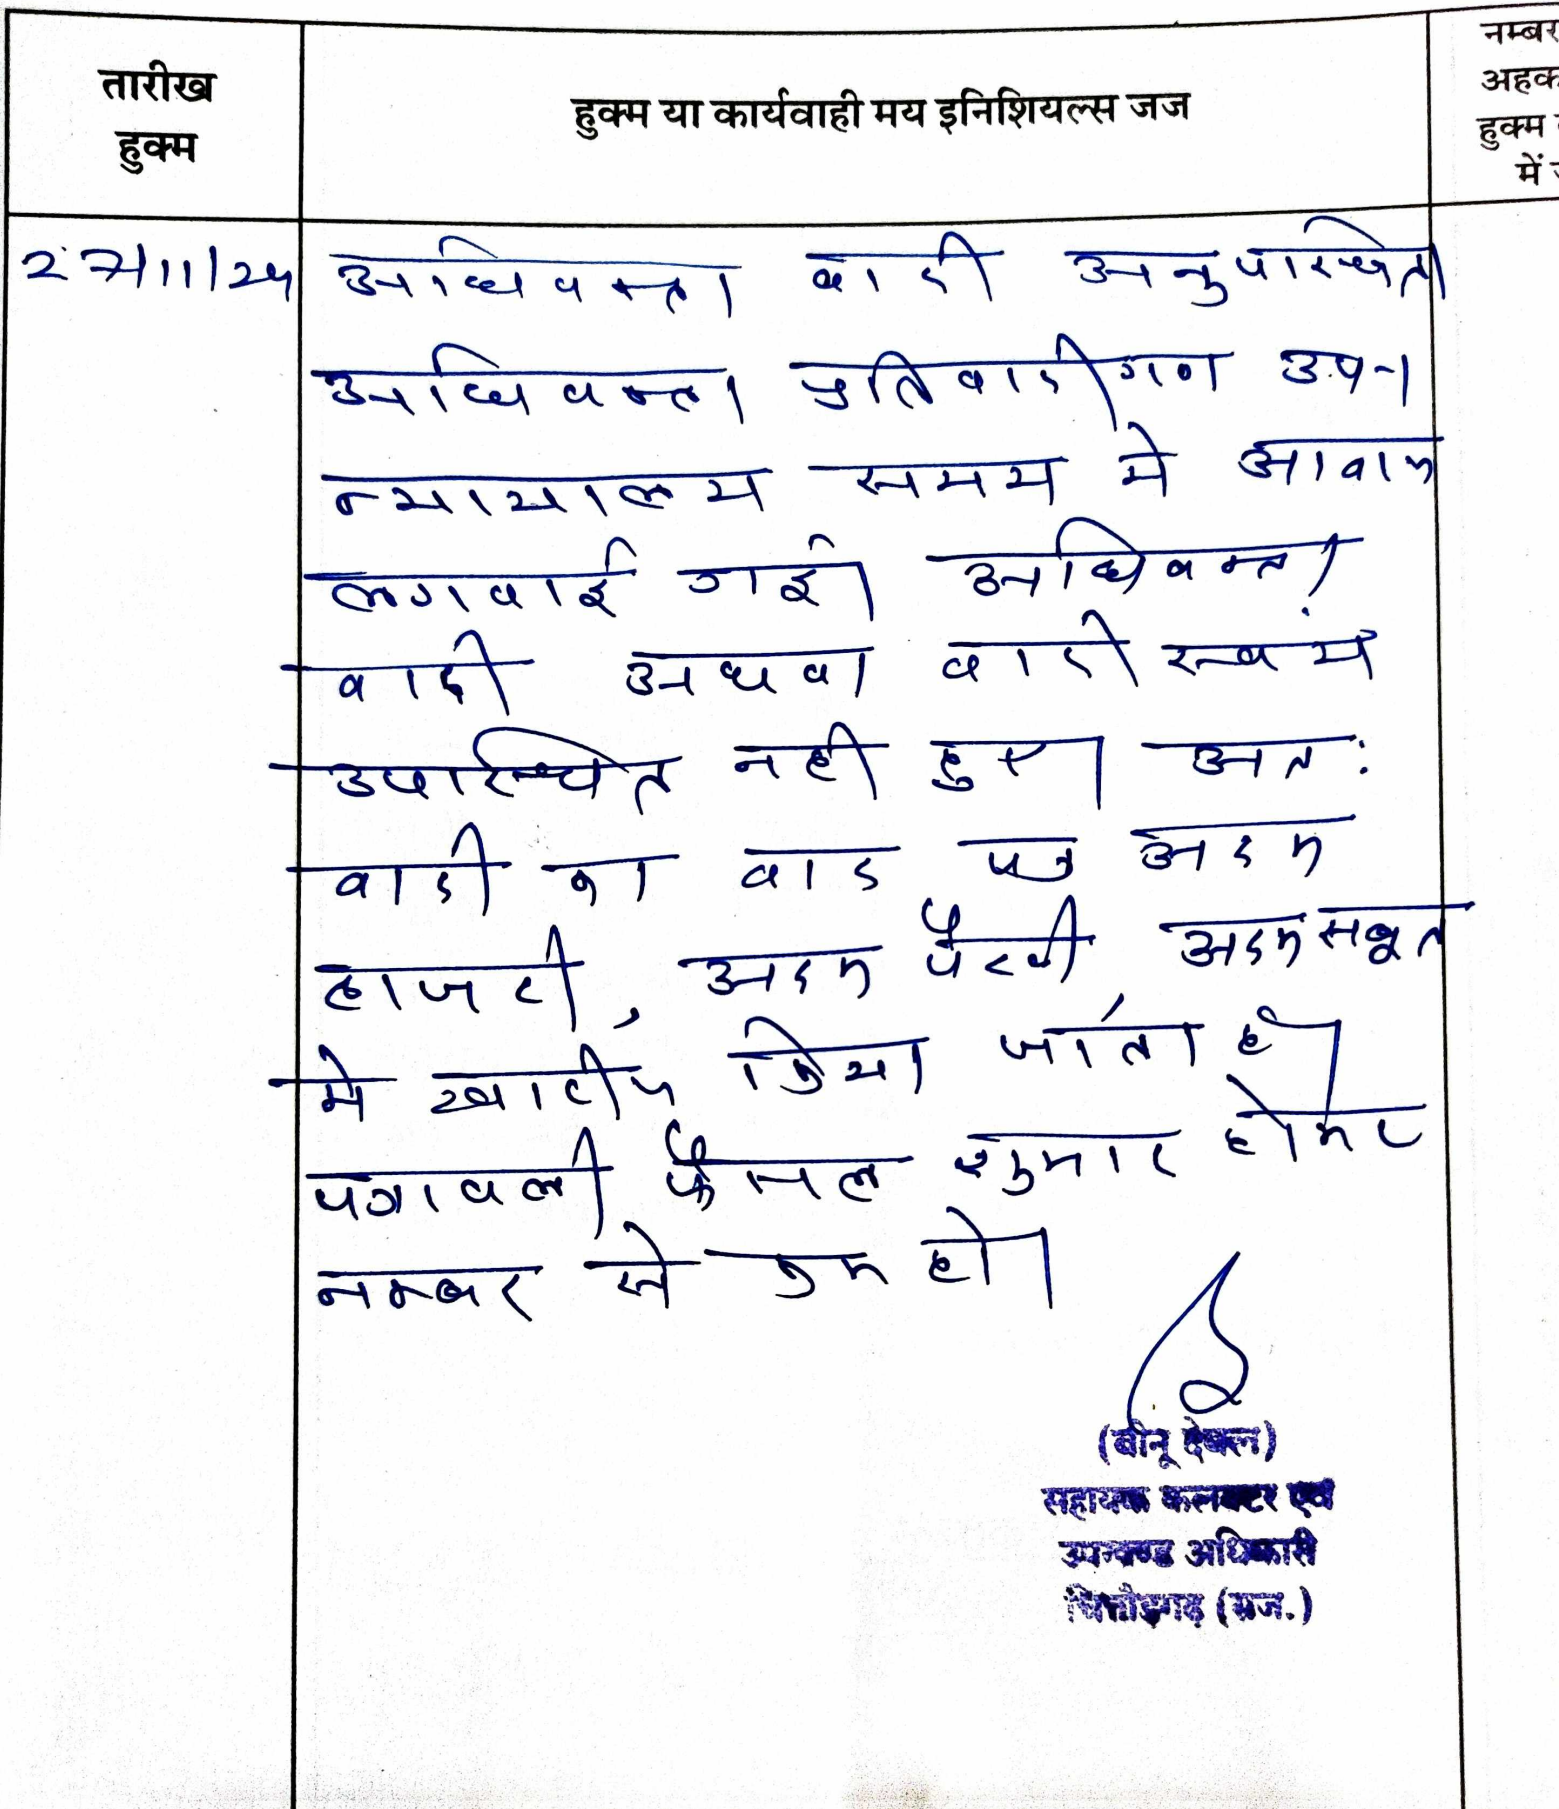 तारीख
हुक्म
हुक्म या कार्यवाही मय इनिशियल्स जज
नम्बर
अहक
हुक्म
में
27/11/24 अधिवक्ता वादी अनुपस्थित।
अधिवक्ता प्रतिवादीगण उप।
न्यायालय समय मे आवाज
लगवाई गई। अधिवक्ता
वादी अथवा वादी स्वयं
उपस्थित नही हुए। अतः
वादी का वाद पत्र अदम
हाजरी, अदम पैरवी अदम सबूत
मे खारीज किया जाता है।
पत्रावली फैसल शुमार होकर
नम्बर से कम हो।
(बीनू देवल)
सहायक कलक्टर एवं
उपखण्ड अधिकारी
चित्तौड़गढ़ (राज.)